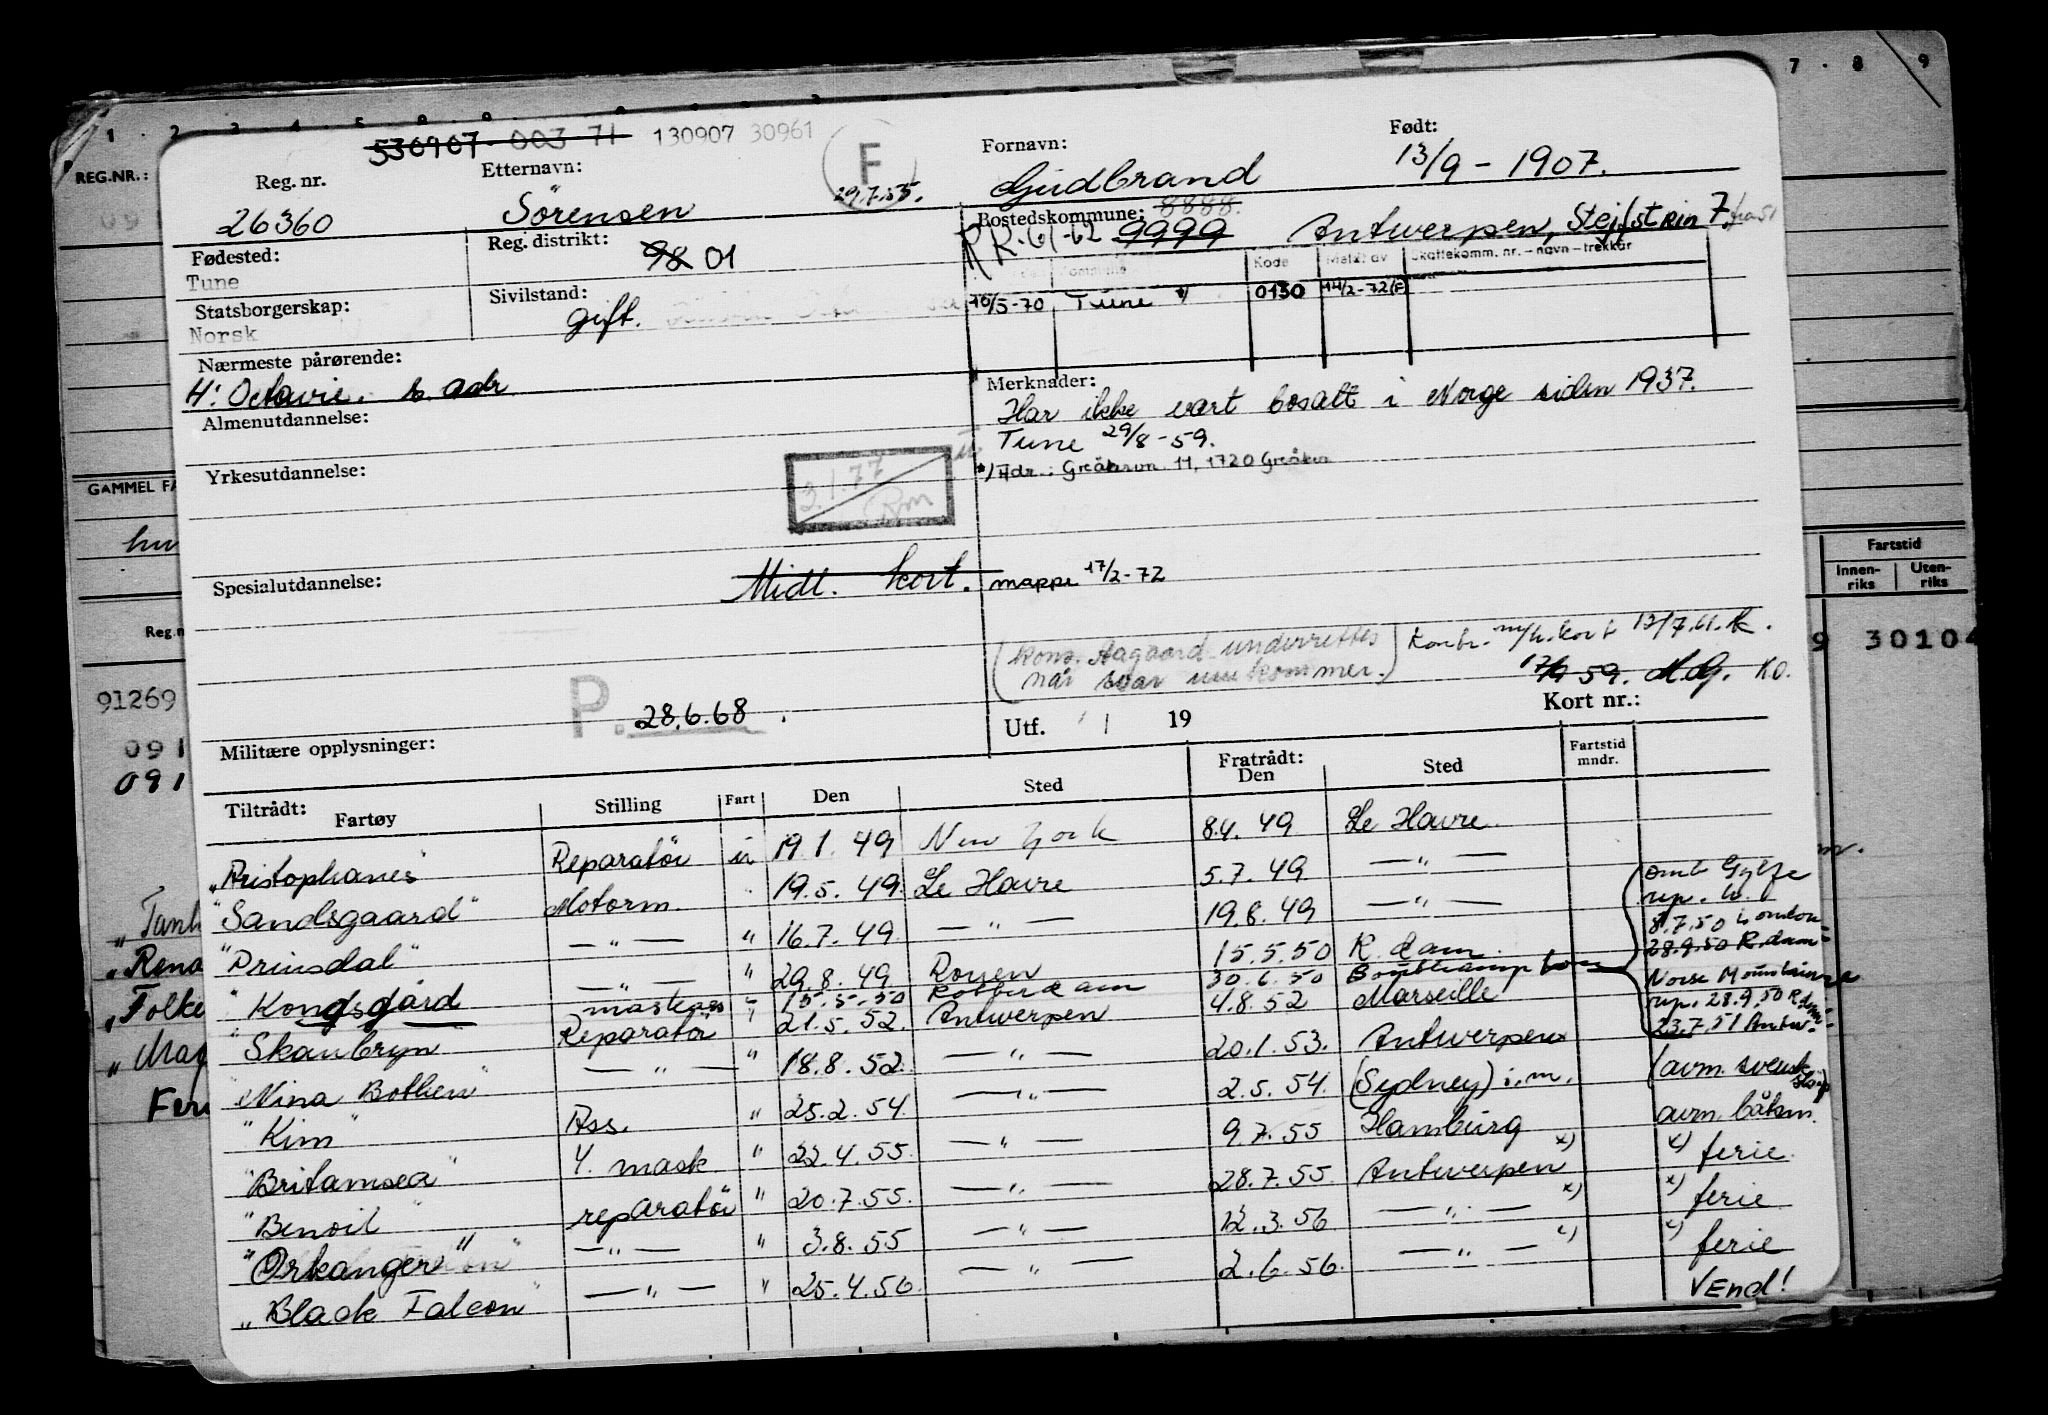 1 . 2 . 3 . 4 . 5 . 6 . 7 . 8 . 9
REG.NR.:
530907 003 71 130907 30961
Reg. nr. Etternavn: F Fornavn: Født:
26360 Sörensen 29.7.55. Gudbrand 13/9 - 1907.
Fødested: Reg. distrikt: Bostedskommune: 8888.
Tune 98 01 RR-61-62 9999 Antwerpen, 7.
Kode Meldt av Skattekomm. nr. - navn - trekkår
Statsborgerskap: Sivilstand: 10/5-70 Tune *) 0130 14/2-72(F)
Norsk gift.
Nærmeste pårørende: Merknader:
H: Octavie. s. adr Har ikke vært bosatt i Norge siden 1937.
Almenutdannelse: Tune 29/8-59.
Yrkesutdannelse: *) Adr.: Greåkervn. 11, 1720 Greåker
3.1.77
GAMMEL
Spesialutdannelse: Midl. kort. mappe 17/2-72
(kons. Aagaard underrettes
når svar innkommer.)
Kontr. m/h.kort 13/7.61.K.
59. M.G. K.O.
P. 28.6.68.
Utf. / 19 Kort nr.:
Militære opplysninger:
Fartstid
Innen-riks Uten-riks
9 30104
91269
091
091
Tiltrådt: Fratrådt:
Fartøy Stilling Fart Den Sted Den Sted Fartstid mndr.
"Aristophanes" Reparatör u 19.1.49 New York 8.4.49 Le Havre.
"Sandsgaard" Motorm. 19.5.49. Le Havre 5.7.49 — " —
"Prinsdal" — " — " 16.7.49. — " — 19.8.49 — " —
"Kongsgård — " — " 29.8.49 Rouen 15.5.50 R.dam.
15.5.50 Rotterdam 30.6.50
"Skaubryn" Reparatör " 21.5.52. Antwerpen 4.8.52 Marseille
"Nina Bothen" — " — " 18.8.52. — " — 20.1.53. Antwerpen
"Kim" Ass. " 25.2.54. — " — 2.5.54. (Sydney) i.m. (avm. svensk skip
"Britamsea" 4. mask. " 22.4.55. — " — 9.7.55 Hamburg avm. båtm.
"Benoil" reparatör " 20.7.55. — " — 28.7.55. Antwerpen x) x) ferie.
"Orkanger" — " — " 3.8.55 — " — 12.3.56 — " — x) x) ferie
"Black Falcon" — " — " 25.4.56. — " — 2.6.56. — " — x) x) ferie
omb Gylfe
rep. b.
8.7.50 London
28.9.50 R.dam
Norse Mountain
rep. 28.9.50 R.dam
23.7.51 Antw.
Vend!